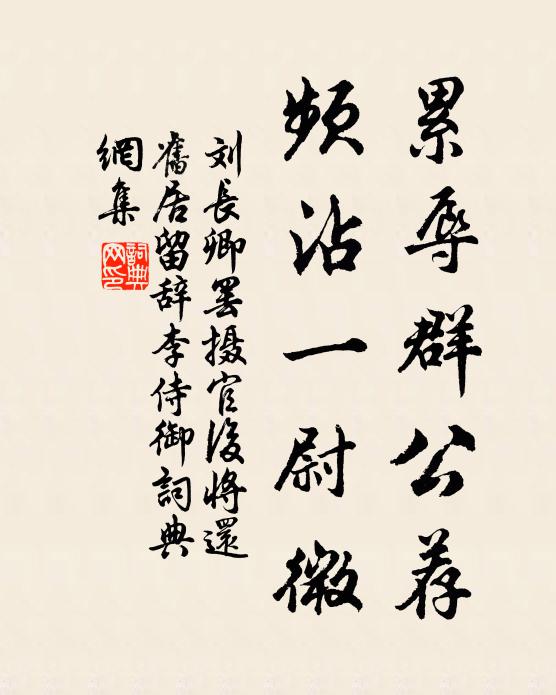 累辱群公荐
频沾一尉微
刘長卿罢摄官後将還
舊居留辞李侍御詞典
網集
詞典
网印